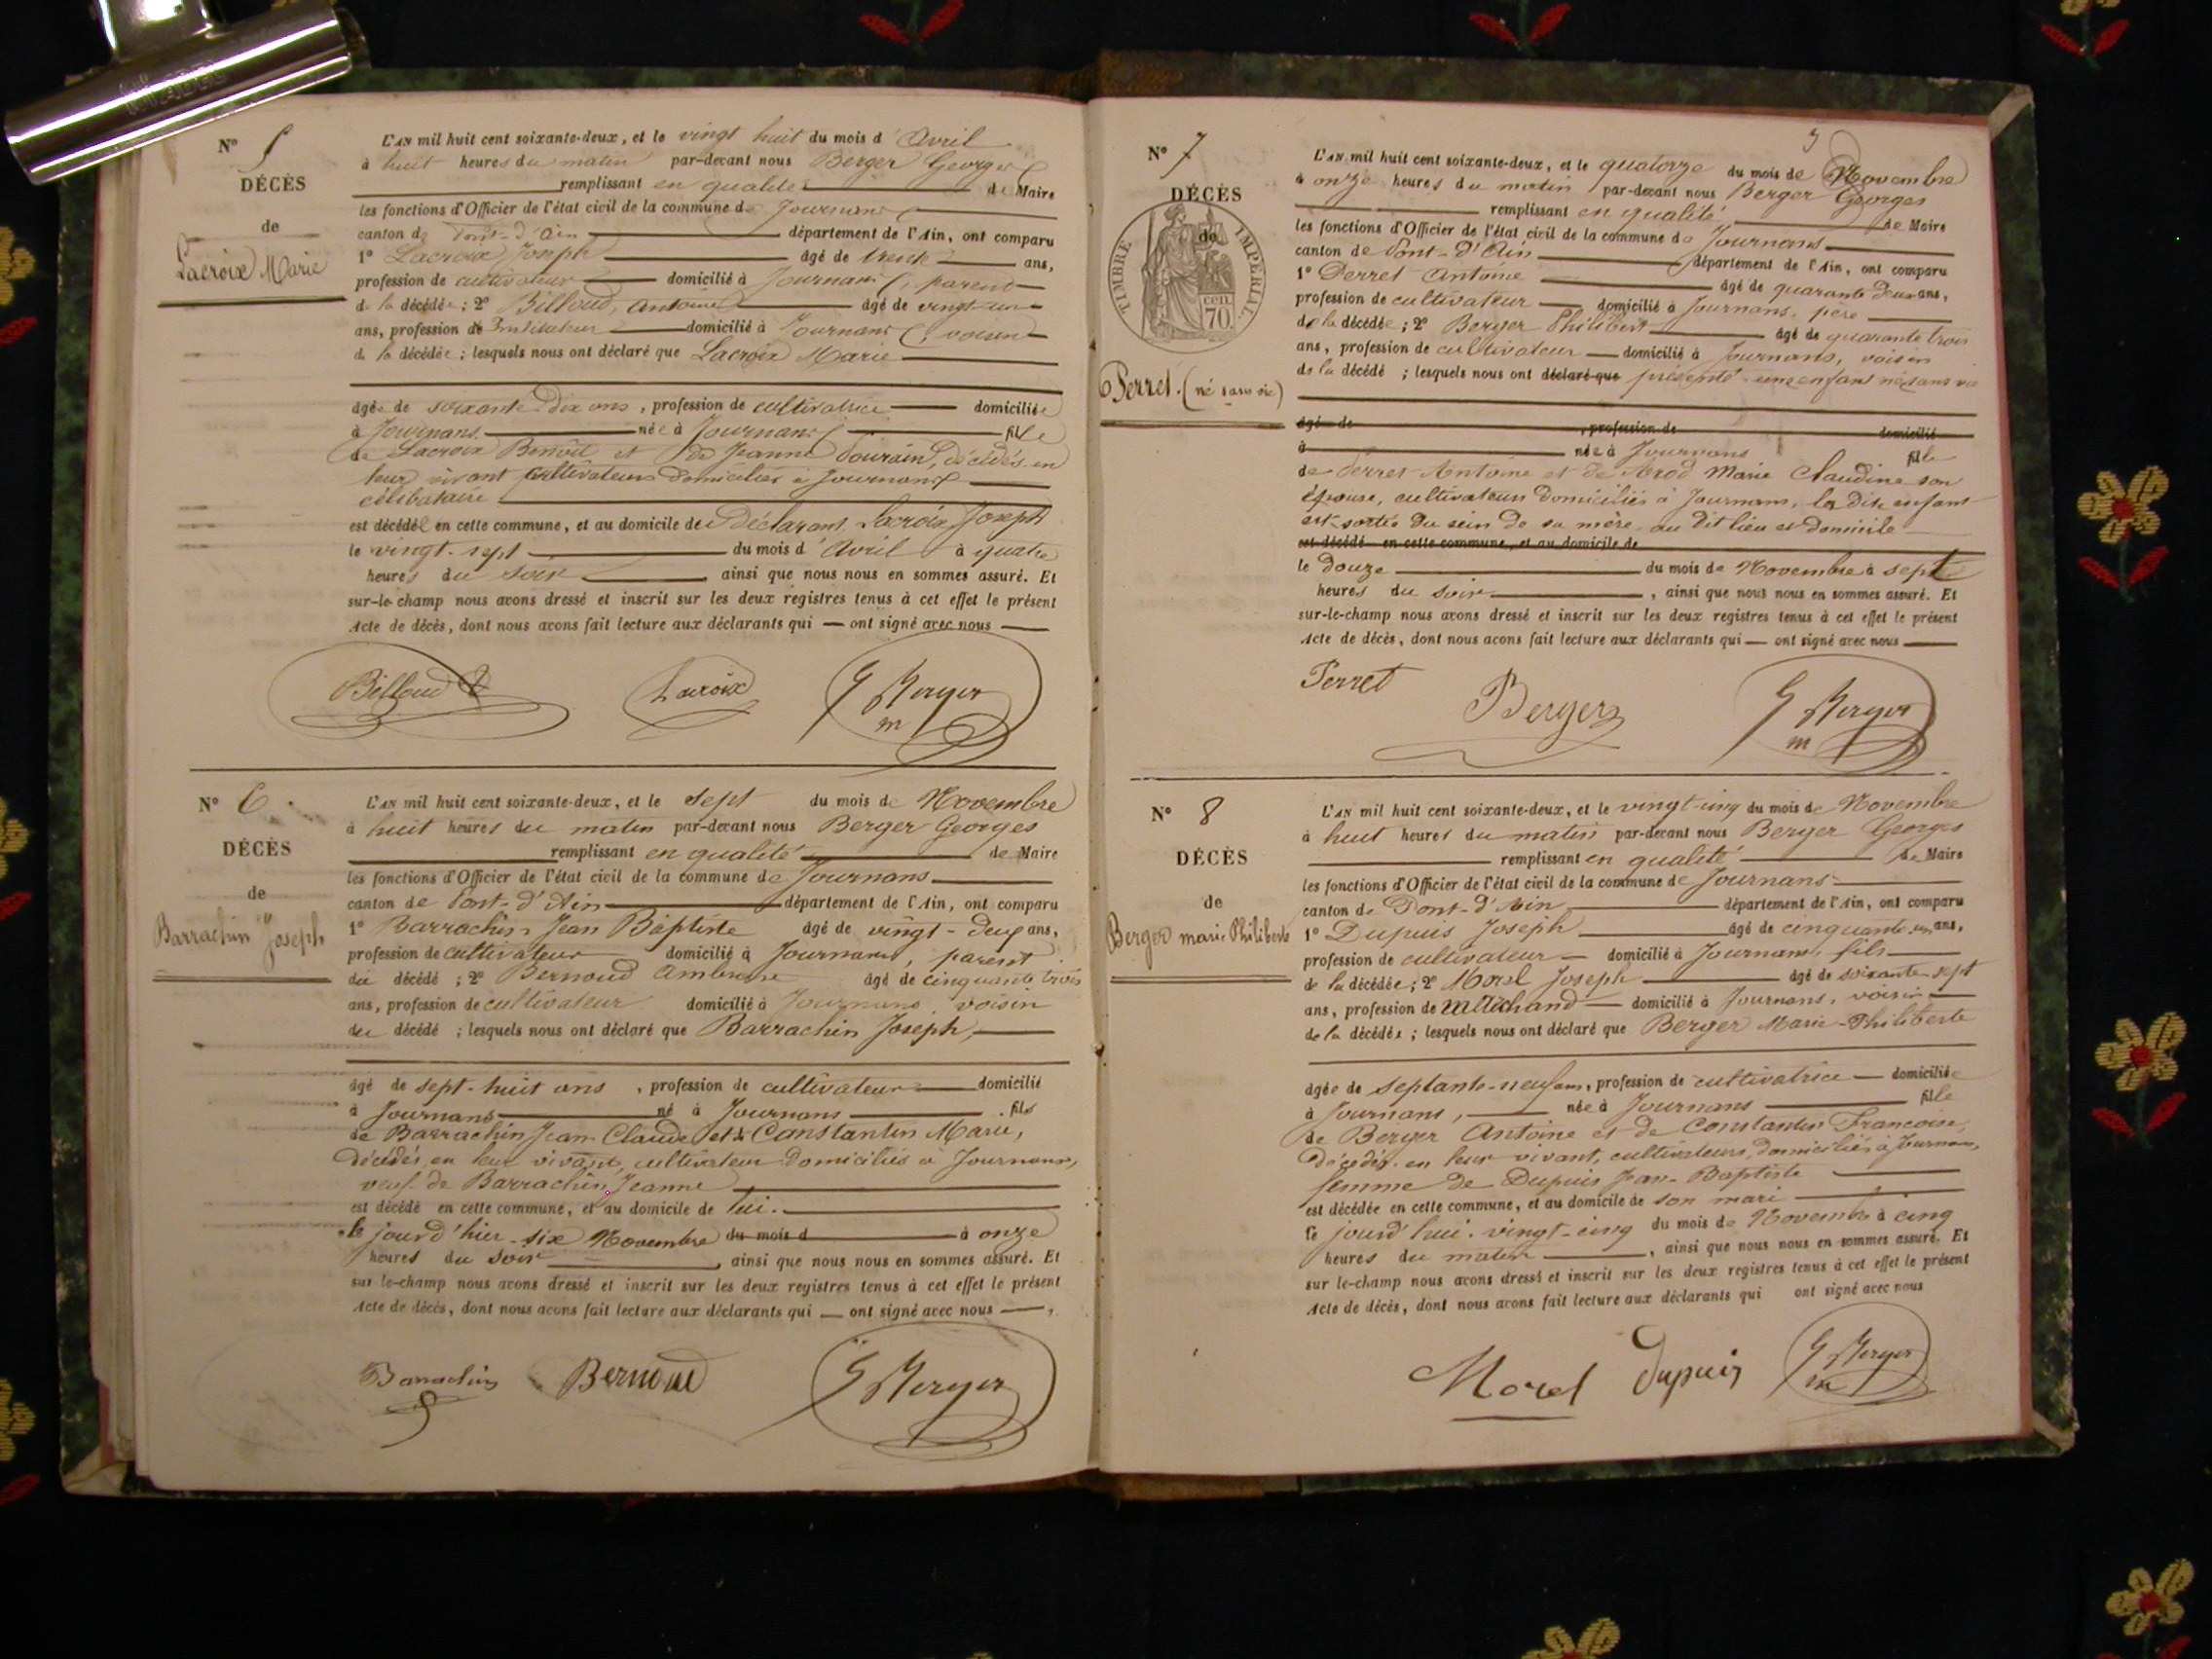 N° 5
DÉCÈS
de
Lacroix Marie
L'AN mil huit cent soixante-deux, et le vingt huit du mois d'Avril
à huit heures du matin par-devant nous Berger Georges
remplissant en qualité de Maire
les fonctions d'Officier de l'état civil de la commune de Journans
canton de Pont-d'Ain département de l'Ain, ont comparu
1° Lacroix Joseph âgé de trente ans,
profession de cultivateur domicilié à Journans, parent
de la décédée ; 2° Billoud, Antoine âgé de vingt-un
ans, profession de Instituteur domicilié à Journans, voisin
de la décédée ; lesquels nous ont déclaré que Lacroix Marie
âgée de soixante-dix ans, profession de cultivatrice domiciliée
à Journans née à Journans fille
de Lacroix Benoît et de Jeanne décédés en
leur vivant cultivateurs domiciliés à Journans
célibataire
est décédée en cette commune, et au domicile de Déclarant Lacroix Joseph
le vingt-sept du mois d'Avril à quatre
heures du soir ainsi que nous nous en sommes assuré. Et
sur-le-champ nous avons dressé et inscrit sur les deux registres tenus à cet effet le présent
Acte de décès, dont nous avons fait lecture aux déclarants qui — ont signé avec nous
Billoud Lacroix G Berger
m
N° 6
DÉCÈS
de
Barrachin Joseph
L'AN mil huit cent soixante-deux, et le sept du mois de Novembre
à huit heures du matin par-devant nous Berger Georges
remplissant en qualité de Maire
les fonctions d'Officier de l'état civil de la commune de Journans
canton de Pont-d'Ain département de l'Ain, ont comparu
1° Barrachin Jean Baptiste âgé de vingt-deux ans,
profession de cultivateur domicilié à Journans, parent
du décédé ; 2° Bernoud Ambroise âgé de cinquante trois
ans, profession de cultivateur domicilié à Journans, voisin
du décédé ; lesquels nous ont déclaré que Barrachin Joseph,
âgé de sept-huit ans, profession de cultivateur domicilié
à Journans né à Journans fils
de Barrachin Jean-Claude et de Constantin Marie,
décédés en leur vivant, cultivateur domiciliés à Journans,
veuf de Barrachin Jeanne
est décédé en cette commune, et au domicile de lui.
le jourd'hier six Novembre du mois d à onze
heures du soir, ainsi que nous nous en sommes assuré. Et
sur le-champ nous avons dressé et inscrit sur les deux registres tenus à cet effet le présent
Acte de décès, dont nous avons fait lecture aux déclarants qui — ont signé avec nous —,
Barrachin Bernoud G Berger
7
N° 7
DÉCÈS
de
TIMBRE IMPÉRIAL
cen. 70.
Perret. (né sans vie)
L'AN mil huit cent soixante-deux, et le quatorze du mois de Novembre
à onze heures du matin par-devant nous Berger Georges
remplissant en qualité de Maire
les fonctions d'Officier de l'état civil de la commune de Journans
canton de Pont-d'Ain département de l'Ain, ont comparu
1° Perret Antoine âgé de quarante deux ans,
profession de cultivateur domicilié à Journans, père
de la décédée ; 2° Berger Philibert âgé de quarante trois
ans, profession de cultivateur domicilié à Journans, voisin
de la décédé ; lesquels nous ont déclaré que présenté une enfant né sans vie
âgé de , profession de domicilié
à née à Journans fille
de Perret Antoine et de Marie Claudine son
épouse, cultivateurs domiciliés à Journans, la dite enfant
est sortie du sein de sa mère au dit lieu et domicile
est décédé en cette commune, et au domicile de
le douze du mois de Novembre à sept
heures du soir, ainsi que nous nous en sommes assuré. Et
sur-le-champ nous avons dressé et inscrit sur les deux registres tenus à cet effet le présent
Acte de décès, dont nous avons fait lecture aux déclarants qui — ont signé avec nous
Perret Berger G Berger
m
N° 8
DÉCÈS
de
Berger marie Philiberte
L'AN mil huit cent soixante-deux, et le vingt-cinq du mois de Novembre
à huit heures du matin par-devant nous Berger Georges
remplissant en qualité de Maire
les fonctions d'Officier de l'état civil de la commune de Journans
canton de Pont-d'Ain département de l'Ain, ont comparu
1° Dupuis Joseph âgé de cinquante-un ans,
profession de cultivateur domicilié à Journans, fils
de la décédée ; 2° Morel Joseph âgé de soixante-sept
ans, profession de domicilié à Journans, voisin
de la décédée ; lesquels nous ont déclaré que Berger Marie-Philiberte
âgée de septante-neuf ans, profession de cultivatrice domiciliée
à Journans, née à Journans fille
de Berger Antoine et de Constantin Françoise,
décédés en leur vivant, cultivateurs, domiciliés à Journans,
femme de Dupuis Jean-Baptiste
est décédée en cette commune, et au domicile de son mari
le jourd'hui vingt-cinq du mois de Novembre à cinq
heures du matin, ainsi que nous nous en sommes assuré. Et
sur le-champ nous avons dressé et inscrit sur les deux registres tenus à cet effet le présent
Acte de décès, dont nous avons fait lecture aux déclarants qui ont signé avec nous
Morel Dupuis G Berger
m